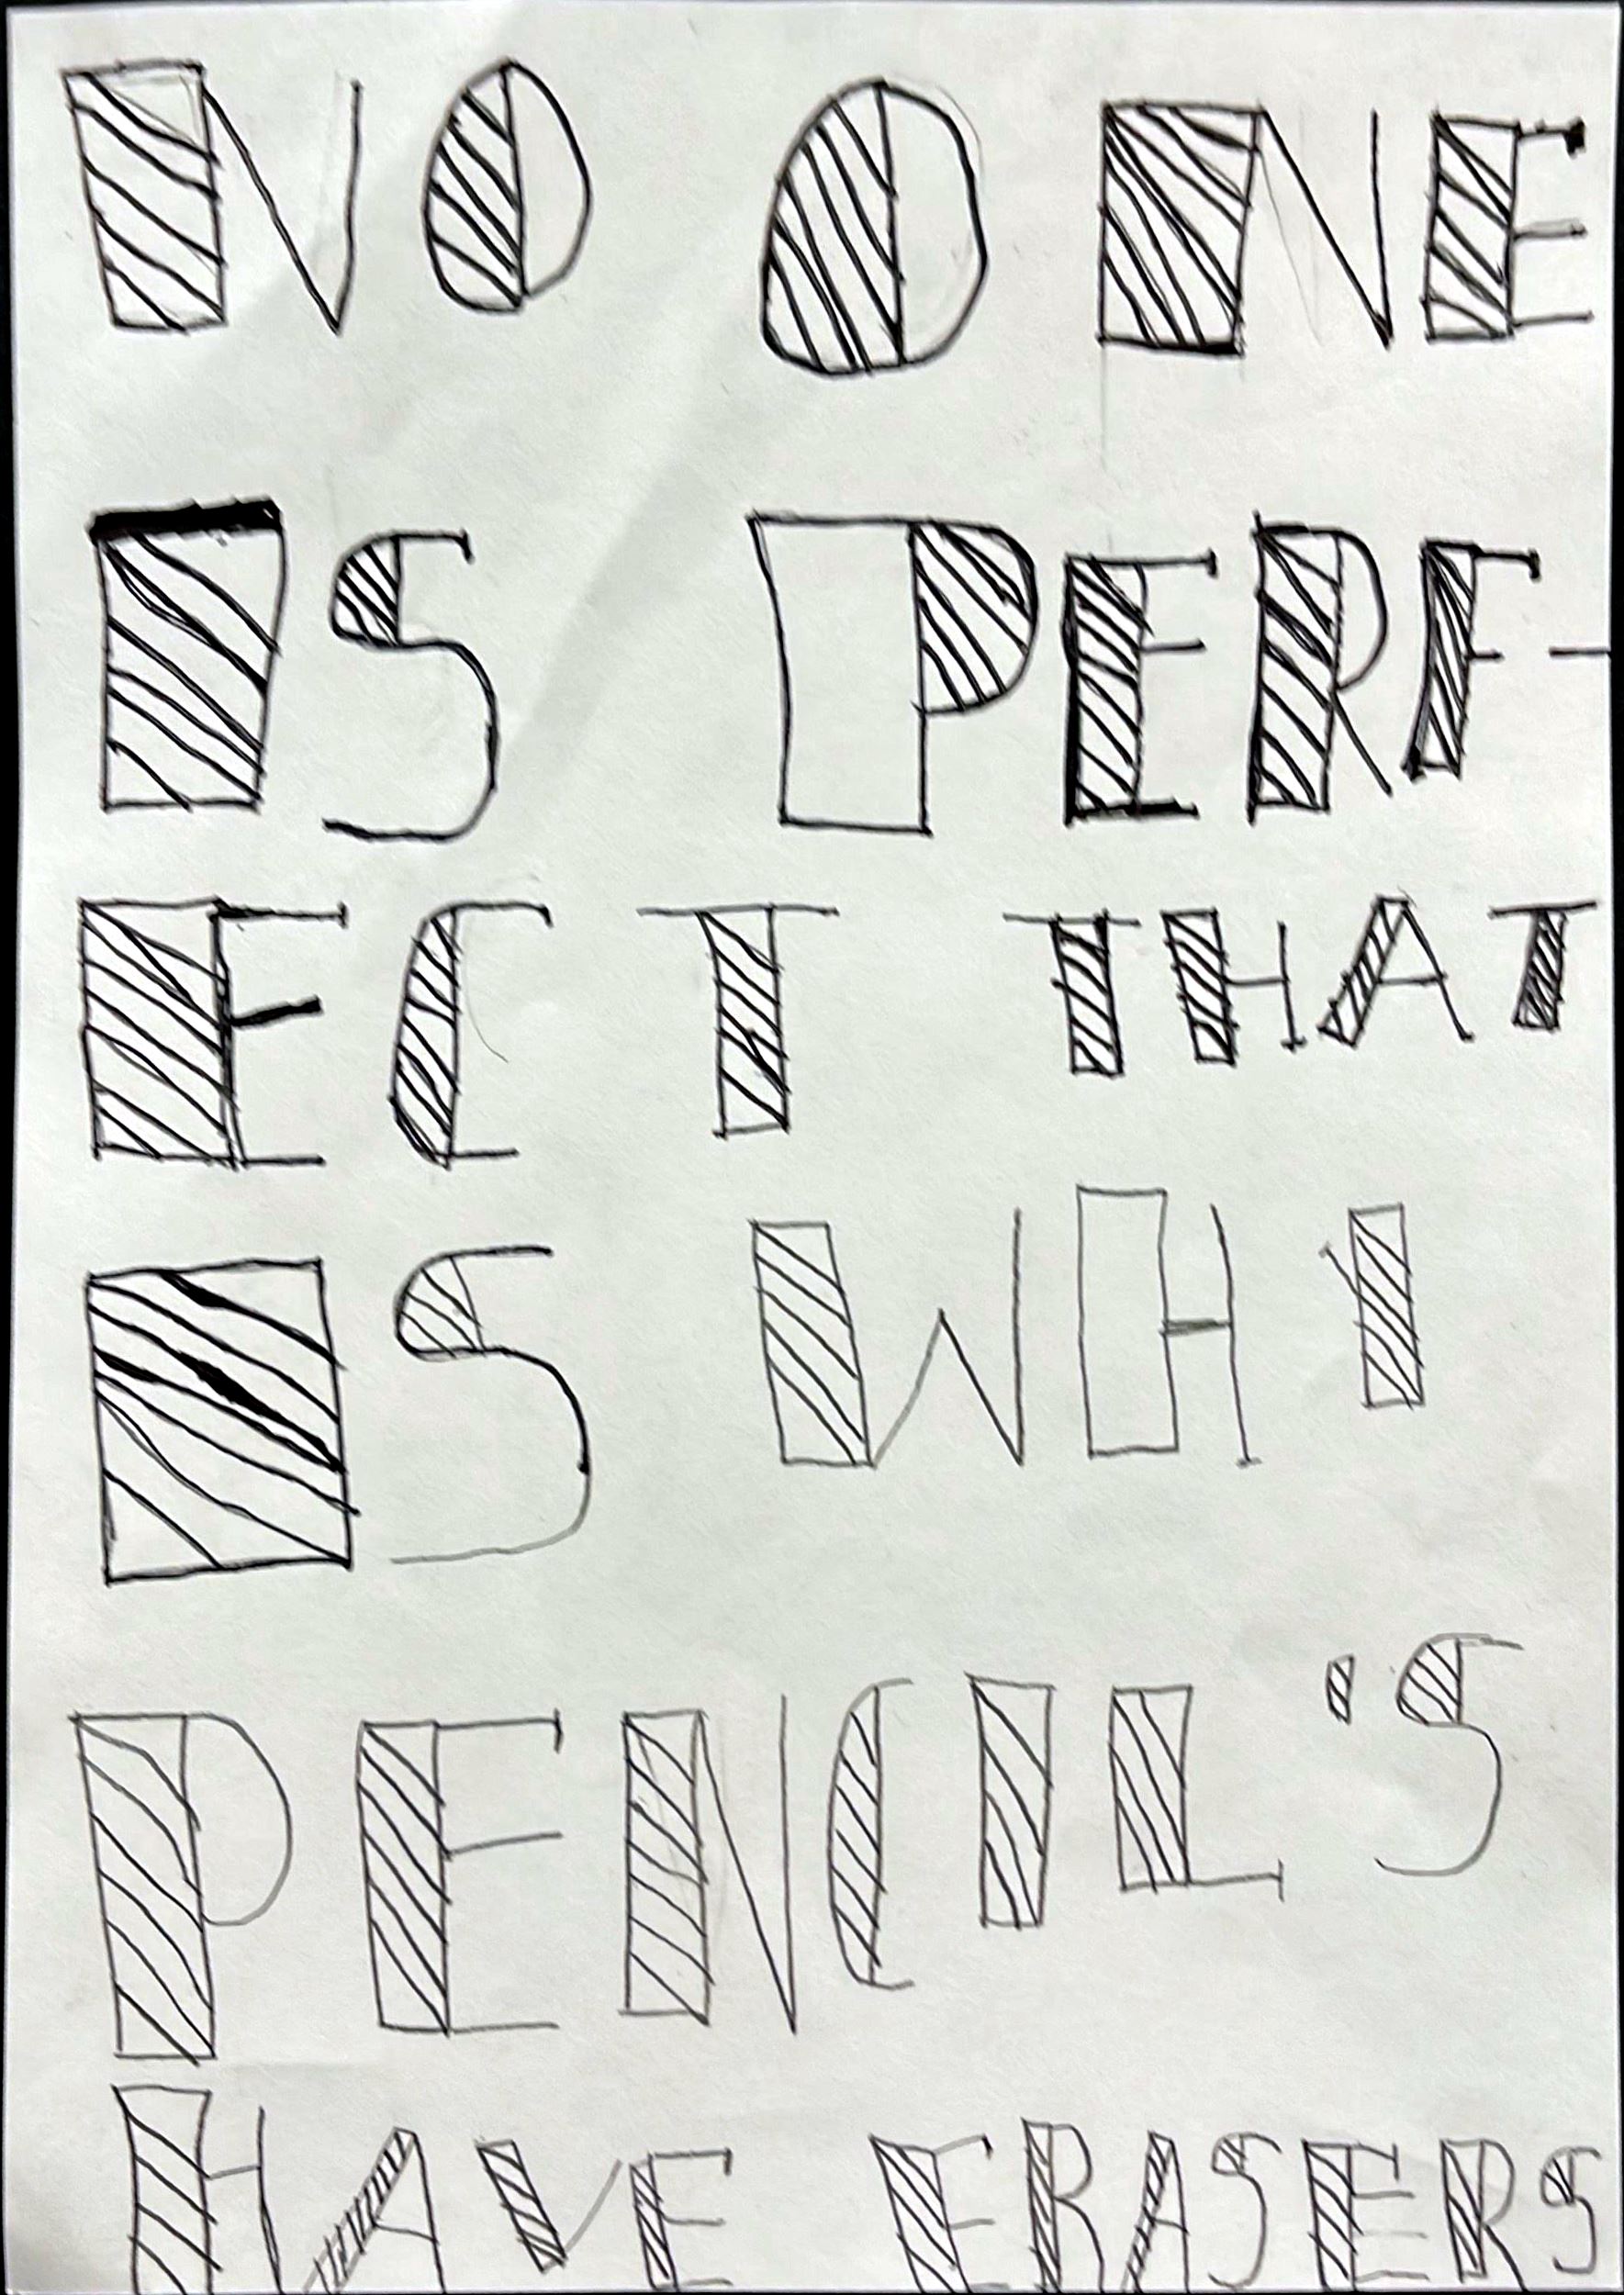 NO ONE
IS PERF-
ECT THAT
IS WHY
PENCIL'S
HAVE ERASERS